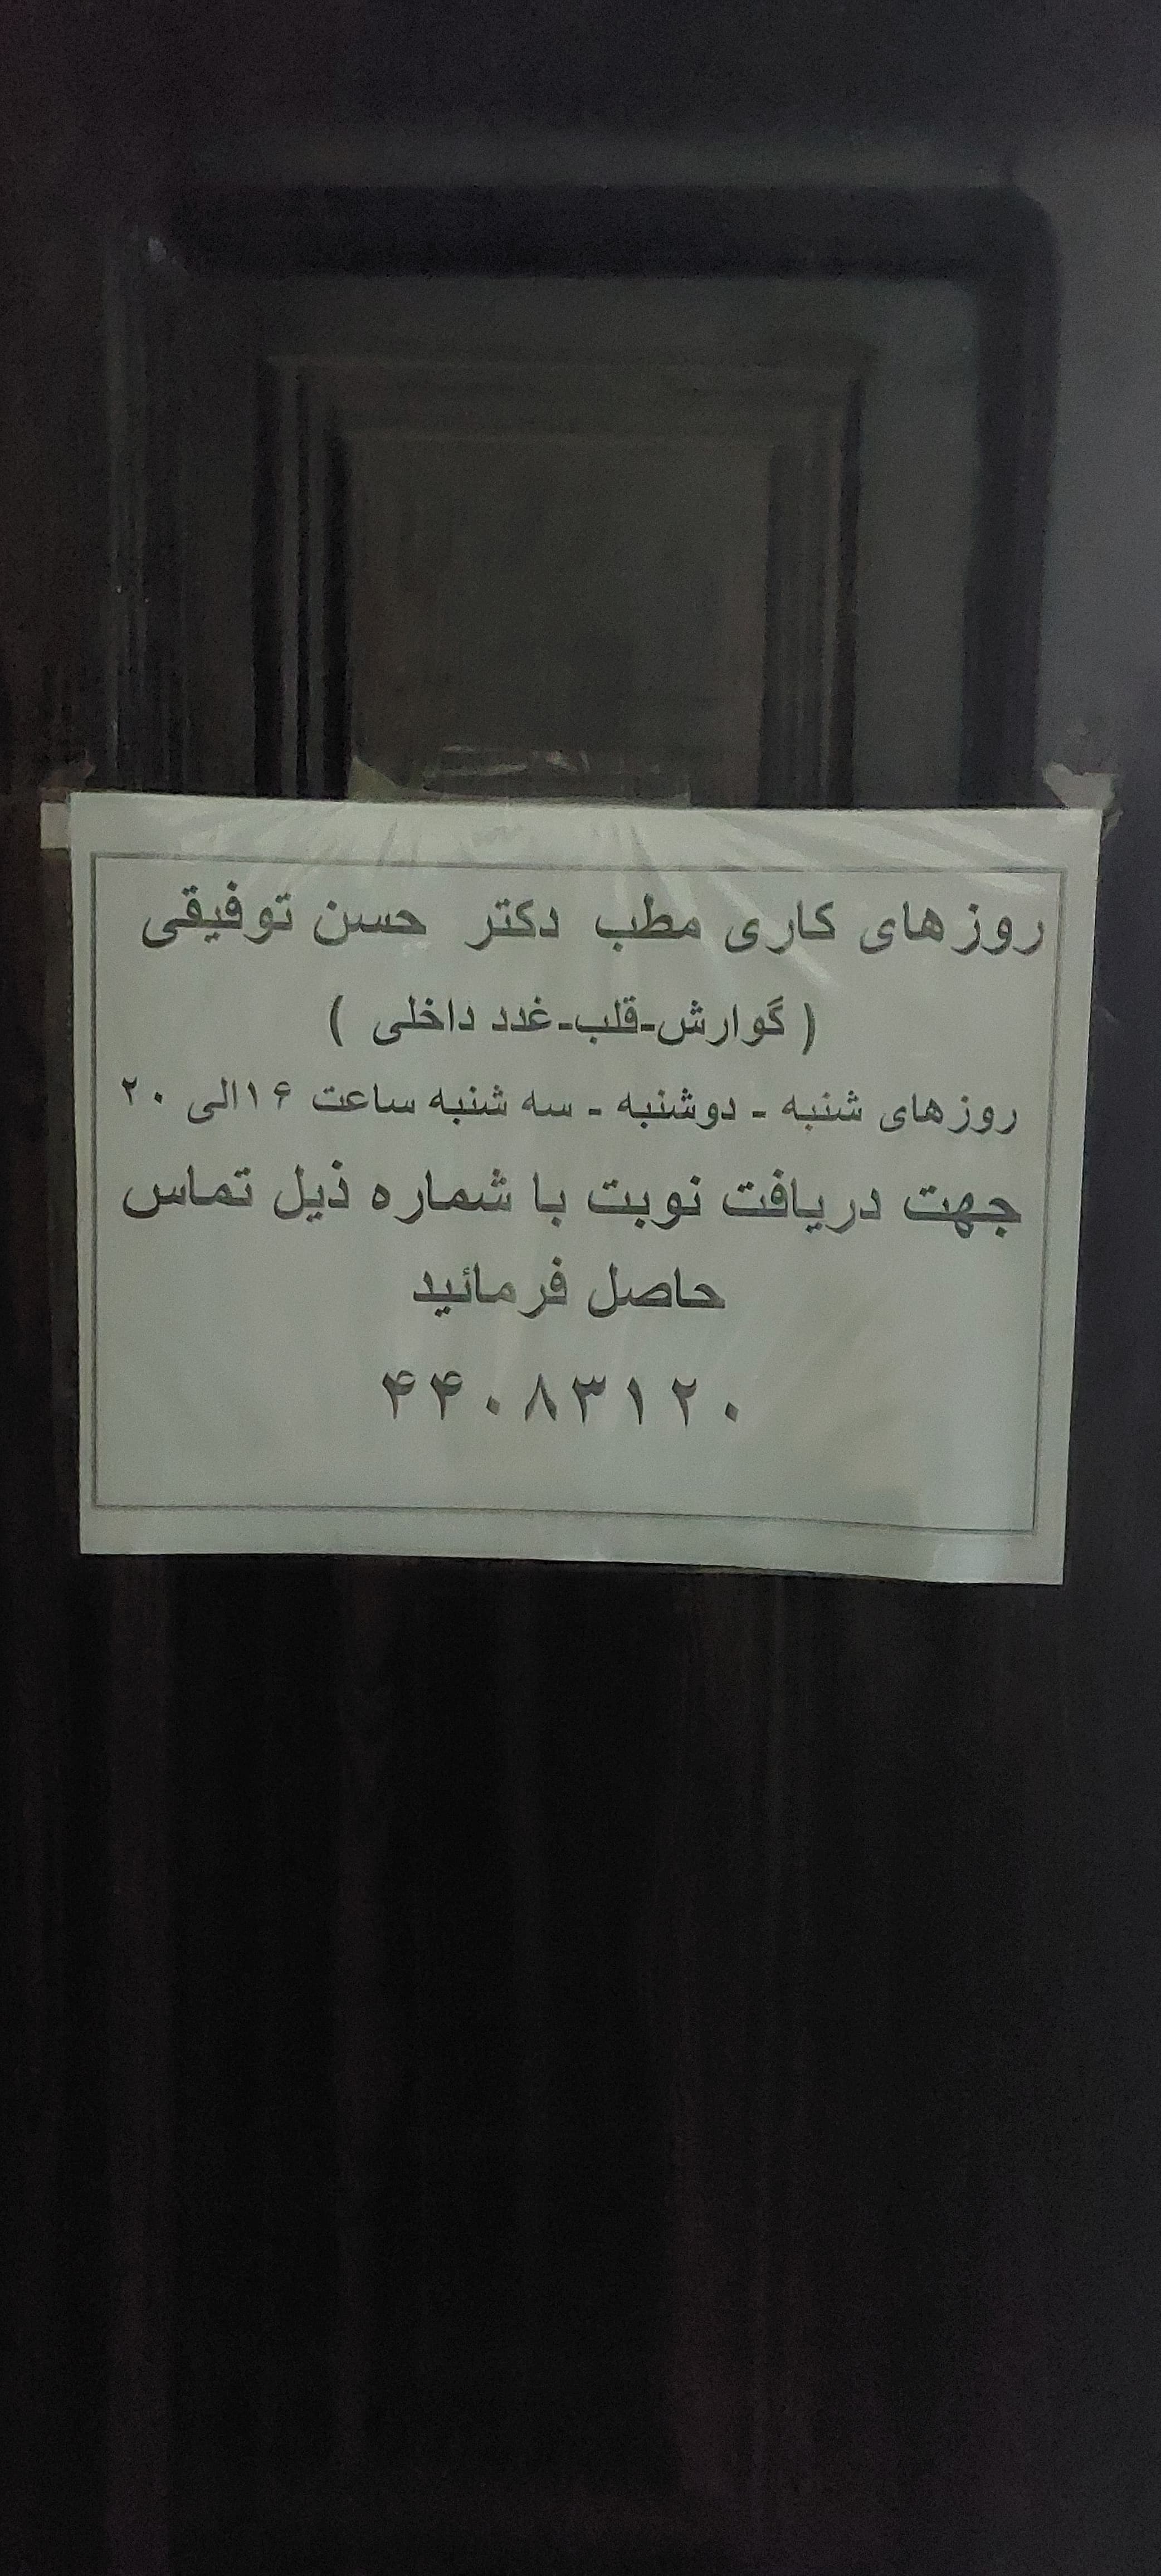 روزهای کاری مطب دکتر حسن توفیقی
( گوارش-قلب-غدد داخلی )
روزهای شنبه - دوشنبه - سه شنبه ساعت ۱۶الی ۲۰
جهت دریافت نوبت با شماره ذیل تماس
حاصل فرمائید
۴۴۰۸۳۱۲۰